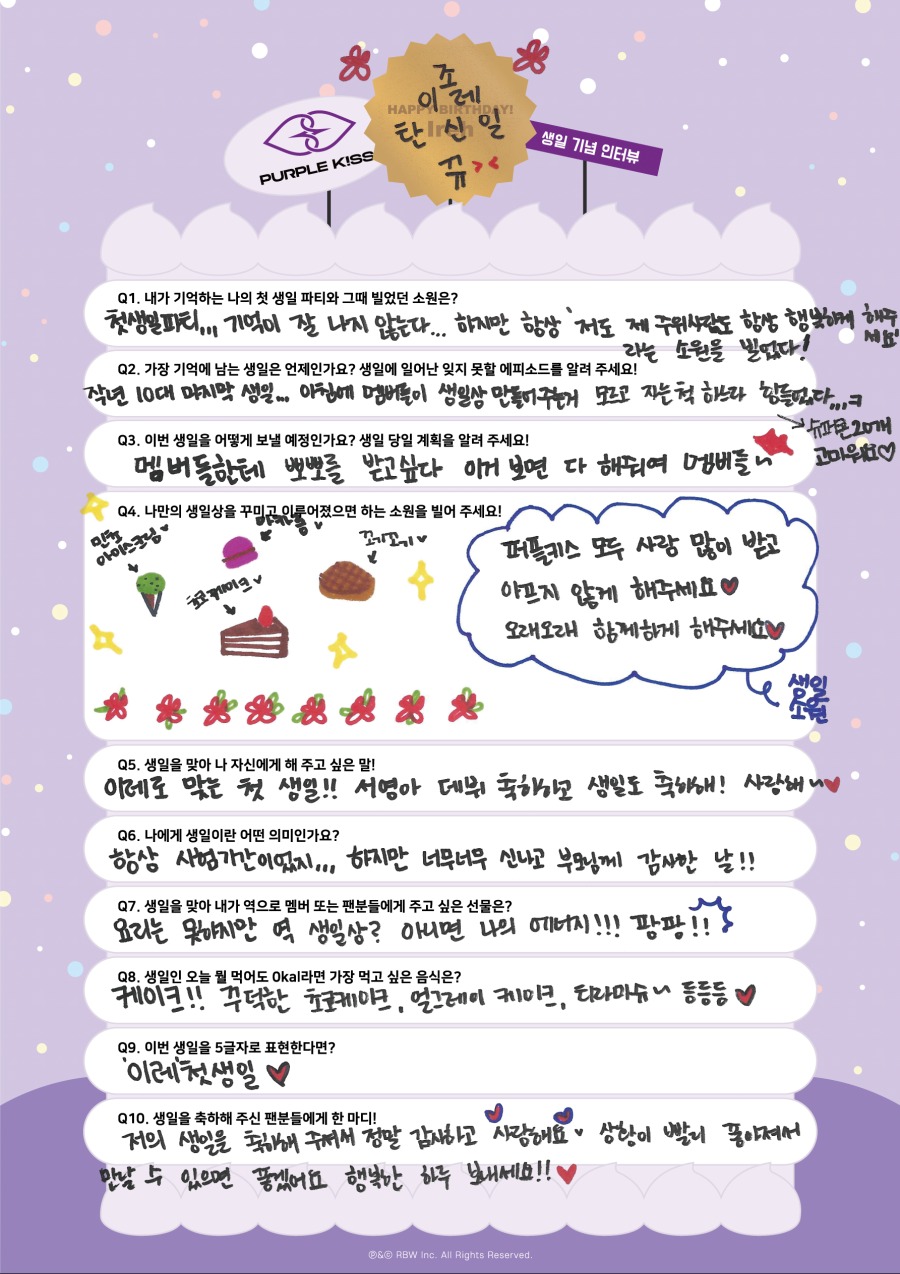 조
이레
HAPPY BIRTHDAY!
Ireh
탄신일
뀨><
PURPLE K!SS
생일 기념 인터뷰
Q1. 내가 기억하는 나의 첫 생일 파티와 그때 빌었던 소원은?
첫생일파티,,, 기억이 잘 나지 않는다... 하지만 항상 '저도 제 주위사람도 항상 행복하게 해주
세요'
라는 소원을 빌었다!
Q2. 가장 기억에 남는 생일은 언제인가요? 생일에 일어난 잊지 못할 에피소드를 알려 주세요!
작년 10대 마지막 생일... 아침에 멤버들이 생일상 만들어주는거 모르고 자는척 하느라 힘들었다,,,ㅋ
20개
고마워요♡
Q3. 이번 생일을 어떻게 보낼 예정인가요? 생일 당일 계획을 알려 주세요!
멤버들한테 뽀뽀를 받고싶다 이거 보면 다 해줘여 멤버들~
Q4. 나만의 생일상을 꾸미고 이루어졌으면 하는 소원을 빌어 주세요!
민초
아이스크림♥
마카롱♥
꼬기꼬기♥
쵸코케이크♥
퍼플키스 모두 사랑 많이 받고
아프지 않게 해주세요♥
오래오래 함께하게 해주세요♥
생일
소원
Q5. 생일을 맞아 나 자신에게 해 주고 싶은 말!
이레로 맞는 첫 생일!! 서영아 데뷔 축하하고 생일도 축하해! 사랑해~♥
Q6. 나에게 생일이란 어떤 의미인가요?
항상 시험기간이었지,,, 하지만 너무너무 신나고 부모님께 감사한 날!!
Q7. 생일을 맞아 내가 역으로 멤버 또는 팬분들에게 주고 싶은 선물은?
요리는 못하지만 역 생일상? 아니면 나의 에너지!!! 팡팡!!
Q8. 생일인 오늘 뭘 먹어도 0kal라면 가장 먹고 싶은 음식은?
케이크!! 꾸덕한 쵸코케이크, 얼그레이 케이크, 티라미슈~ 등등등♥
Q9. 이번 생일을 5글자로 표현한다면?
'이레'첫생일♥
Q10. 생일을 축하해 주신 팬분들에게 한 마디!
저의 생일을 축하해 주셔서 정말 감사하고 사랑해요♥ 상황이 빨리 좋아져서
만날 수 있으면 좋겠어요 행복한 하루 보내세요!!♥
℗&© RBW Inc. All Rights Reserved.